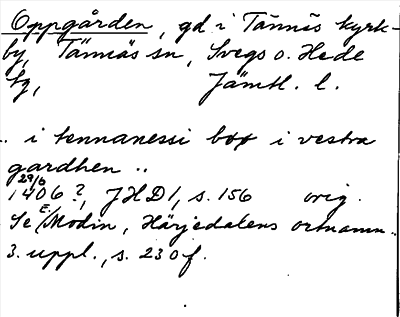 Oppgården, gd i Tännäs kyrk-
by, Tännäs sn, Svegs o. Hede
tg, Jämtl. l.
.. i tennanessi box i vestra
gardhen ..
29/6
1406 ?, JHD 1, s. 156 orig.
Se E/ Modin, Härjedalens ortnamn..
3. uppl., s. 230 f.